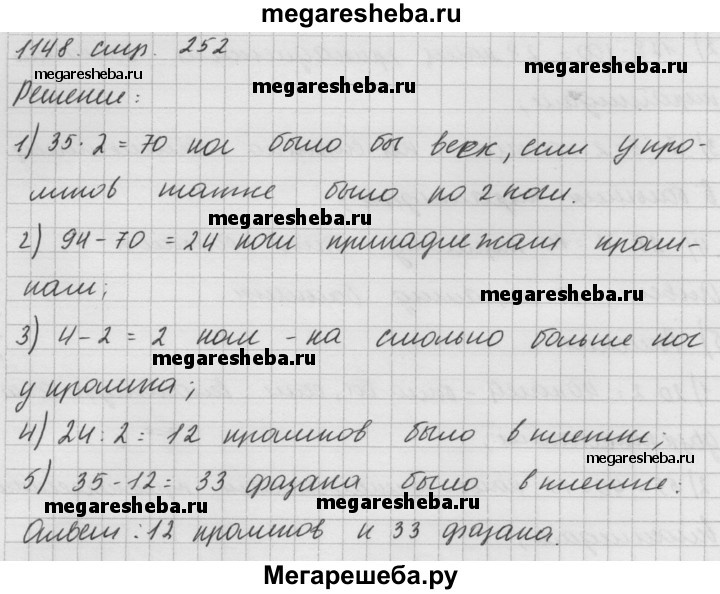 megaresheba.ru
1148. стр. 252
megaresheba.ru
Решение:
1) 35 · 2 = 70 ног было бы всех, если у кро-
ликов также было по 2 ноги.
megaresheba.ru
2) 94 - 70 = 24 ноги принадлежат кроли-
кам;
megaresheba.ru
3) 4 - 2 = 2 ноги - на сколько больше ног
megaresheba.ru
у кролика;
4) 24 : 2 = 12 кроликов было в клетке;
megaresheba.ru
5) 35 - 12 = 33 фазана было в клетке.
megaresheba.ru
megaresheba.ru
Ответ: 12 кроликов и 33 фазана.
Мегарешеба.ру